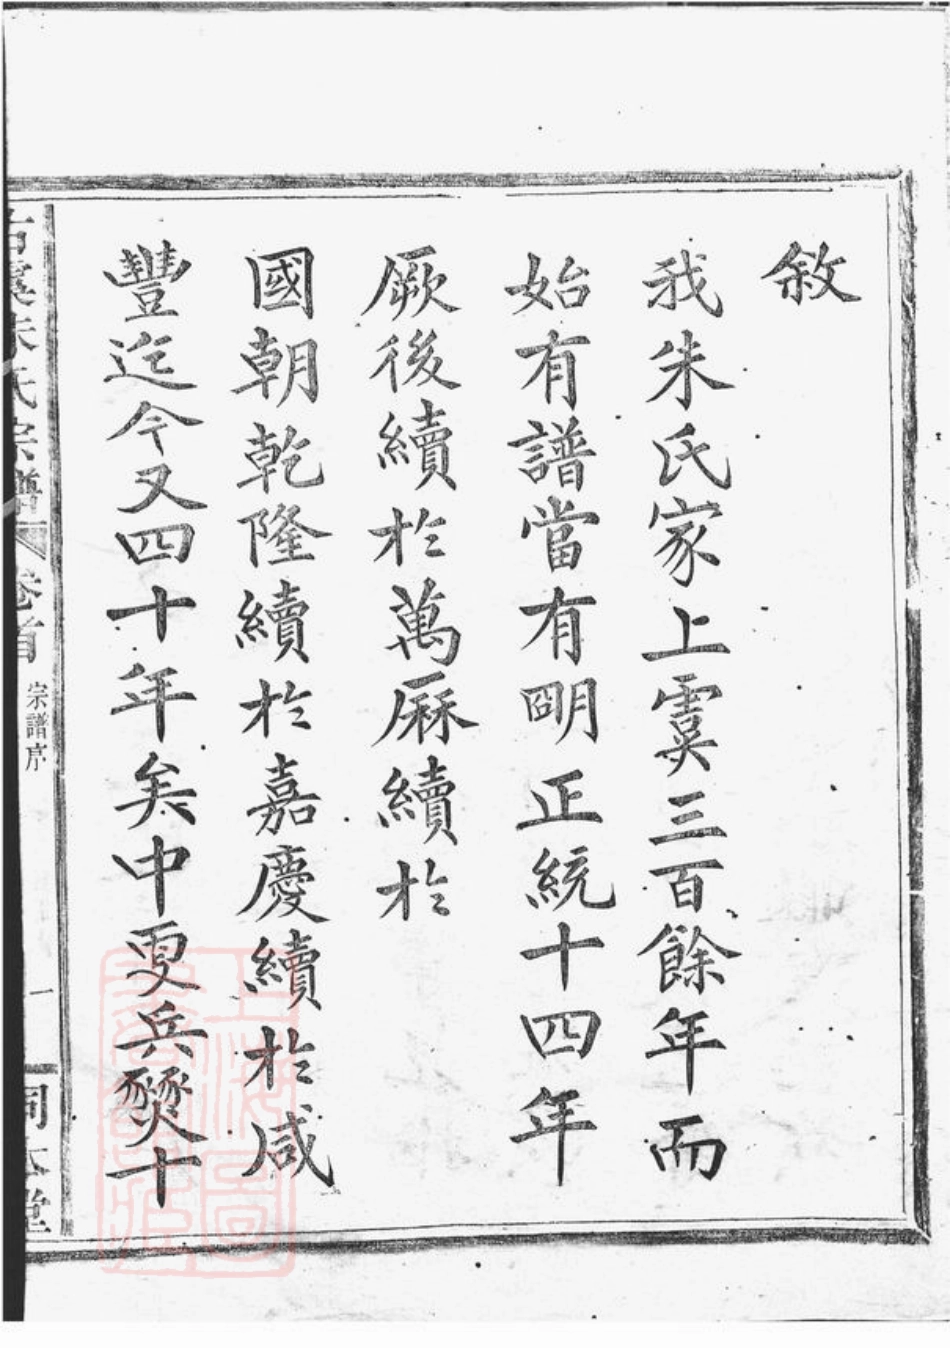 敘
我朱氏家上虞三百餘年而
始有譜當有明正統十四年
厥後續於萬厤續於
國朝乾隆續於嘉慶續於咸
豐迄今又四十年矣中更兵燹十
古虞朱氏宗譜 卷首 宗譜序 一 同本堂
上海圖書館藏